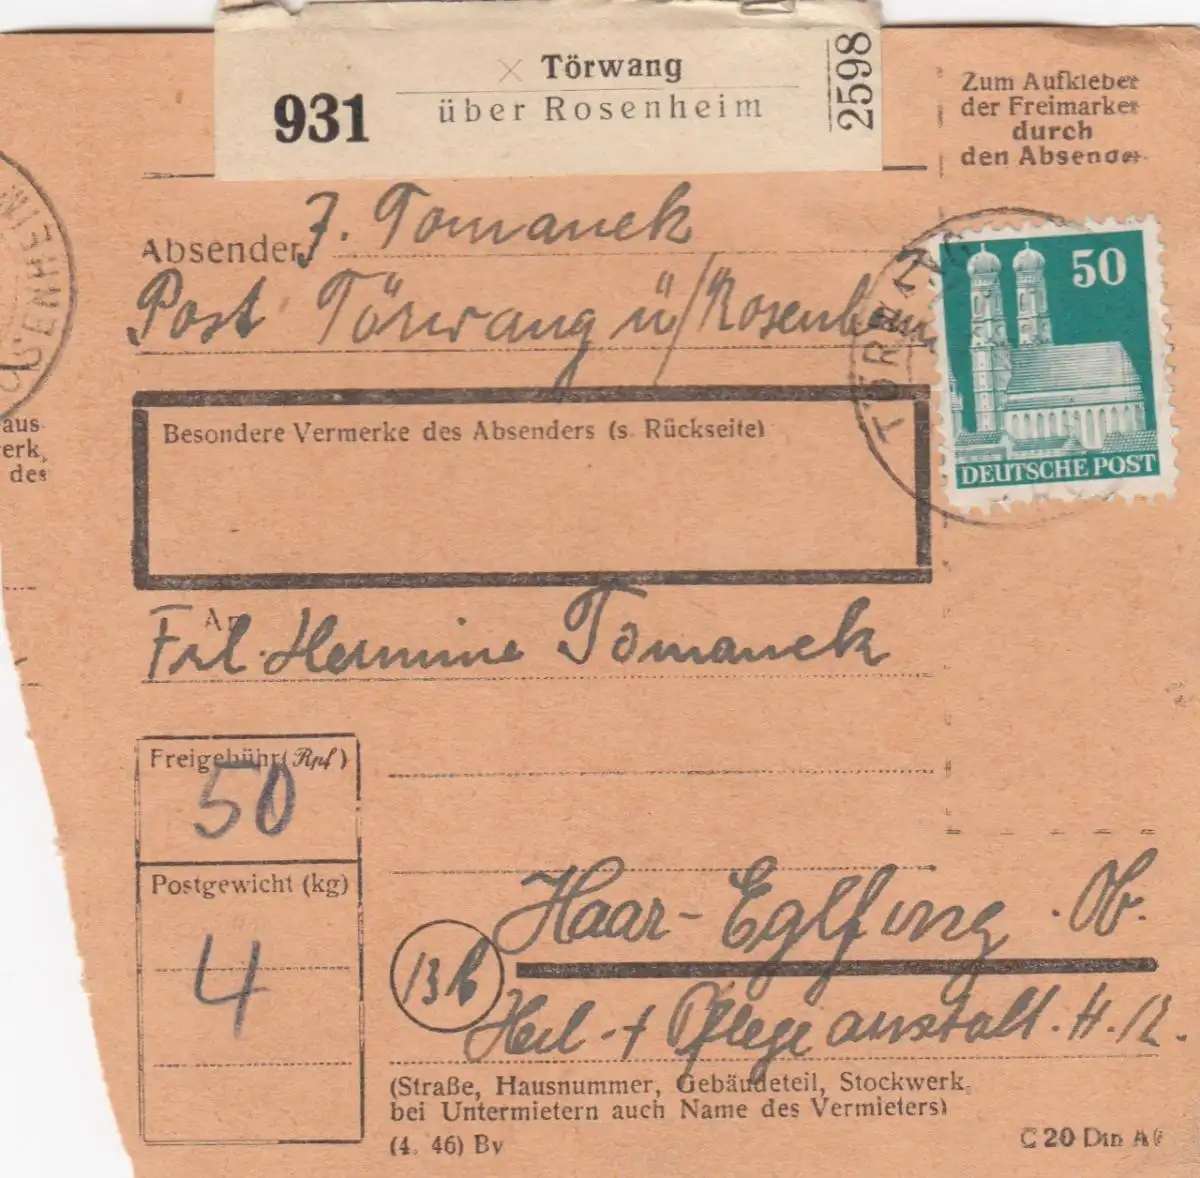 931
× Törwang
über Rosenheim
2598
Zum Aufkleben
der Freimarken
durch
den Absender
Absender J. Tomanek
Post Törwang ü/Rosenheim
50
DEUTSCHE POST
TÖRWANG
SENHEIM
aus-
erk,
des
Besondere Vermerke des Absenders (s. Rückseite)
An
Frl. Hermine Tomanek
Freigebühr (Rpf)
50
Postgewicht (kg)
4
Haar-Eglfing Ob.
13b
Heil + Pflegeanstalt. H.
(Straße, Hausnummer, Gebäudeteil, Stockwerk,
bei Untermietern auch Name des Vermieters)
(4. 46) By
C 20 Din A6